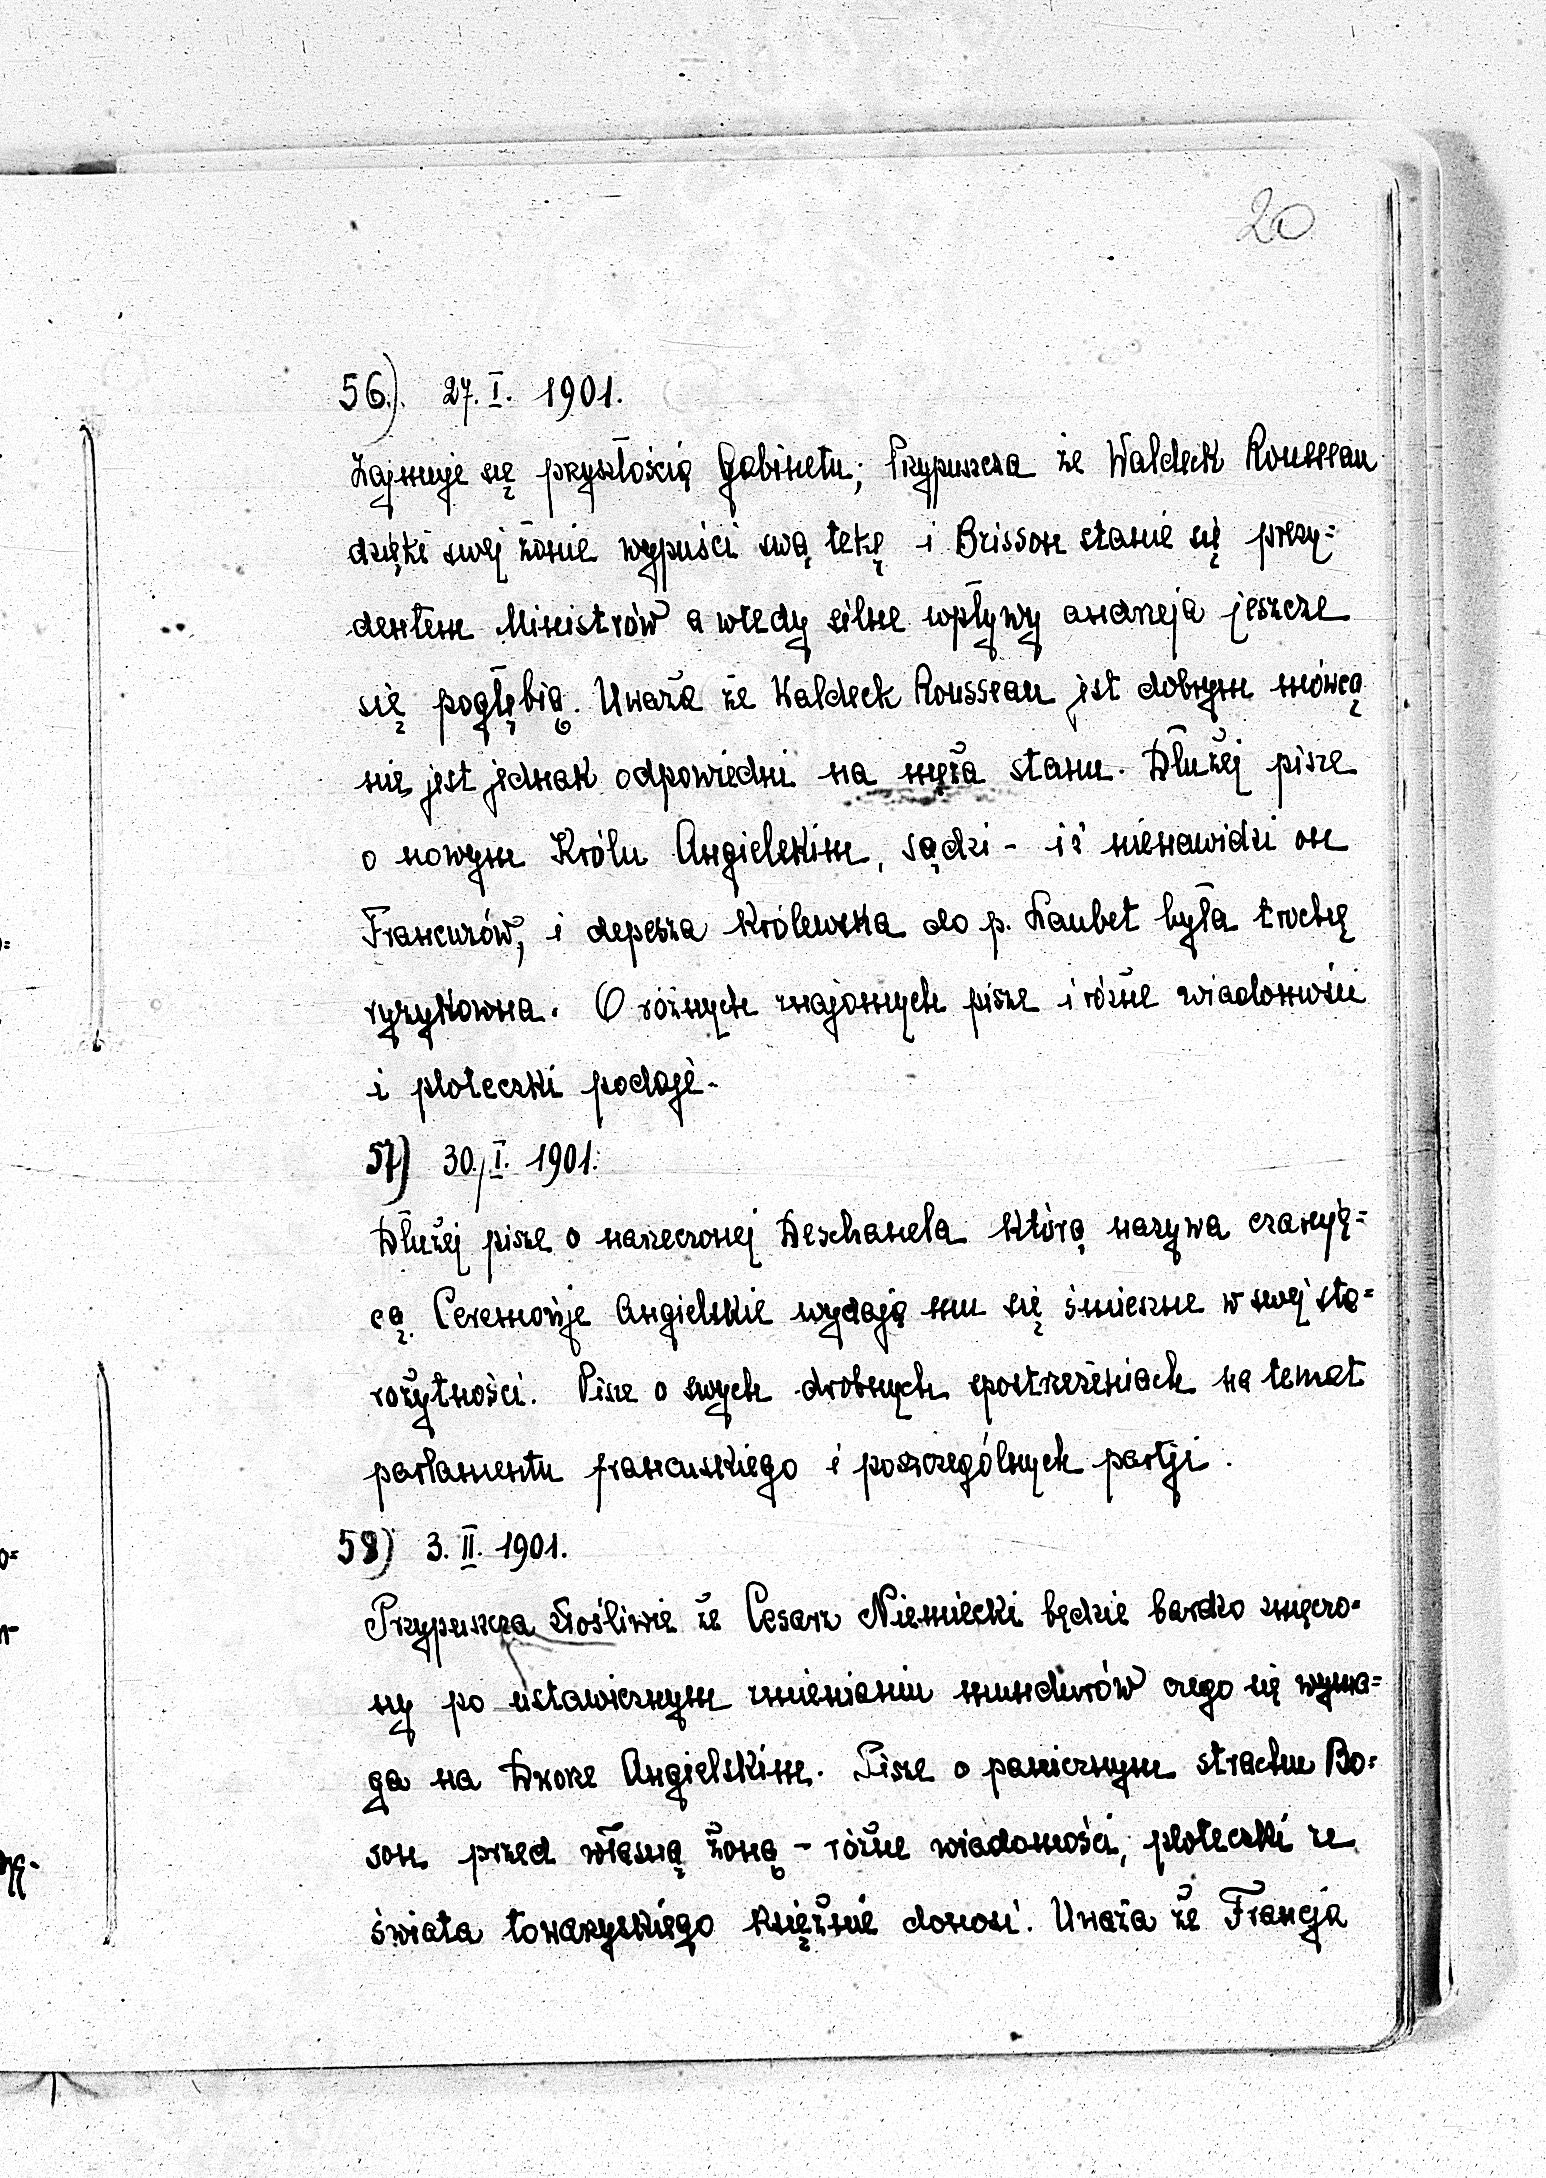 20
56.) 27. I. 1901.
Zajmuje się przyszłością Gabinetu; Przypuszcza że Waldeck Rousseau
dzięki swej żonie wypuści swą tekę i Brisson stanie się prezy=
dentem Ministrów a wtedy silne wpływy andrzeja jeszcze
się pogłębią. Uważa że Waldeck Rousseau jest dobrym mówcą
nie jest jednak odpowiedni na męża stanu. Dłużej pisze
o nowym Królu Angielskim, sądzi - iż nienawidzi on
Francuzów, i depesza Królewska do p. Loubet była trochę
ryzykowna. O różnych znajomych pisze i różne wiadomości
i ploteczki podaje.
57) 30. I. 1901.
Dłużej pisze o narzeczonej Deschanela którą nazywa czarują=
cą. Ceremonje Angielskie wydają mu się śmieszne w swej sta=
rożytności. Pisze o swych drobnych spostrzeżeniach na temat
parlamentu francuskiego i poszczególnych partji.
58) 3. II. 1901.
Przypuszcza złośliwie że Cesarz Niemiecki będzie bardzo zmęczo=
ny po ustawicznym zmienianiu mundurów czego się wyma=
ga na Dworze Angielskim. Pisze o panicznym strachu Bo=
son przed własną żoną - różne wiadomości, ploteczki ze
świata towarzyskiego księżnie donosi. Uważa że Francja